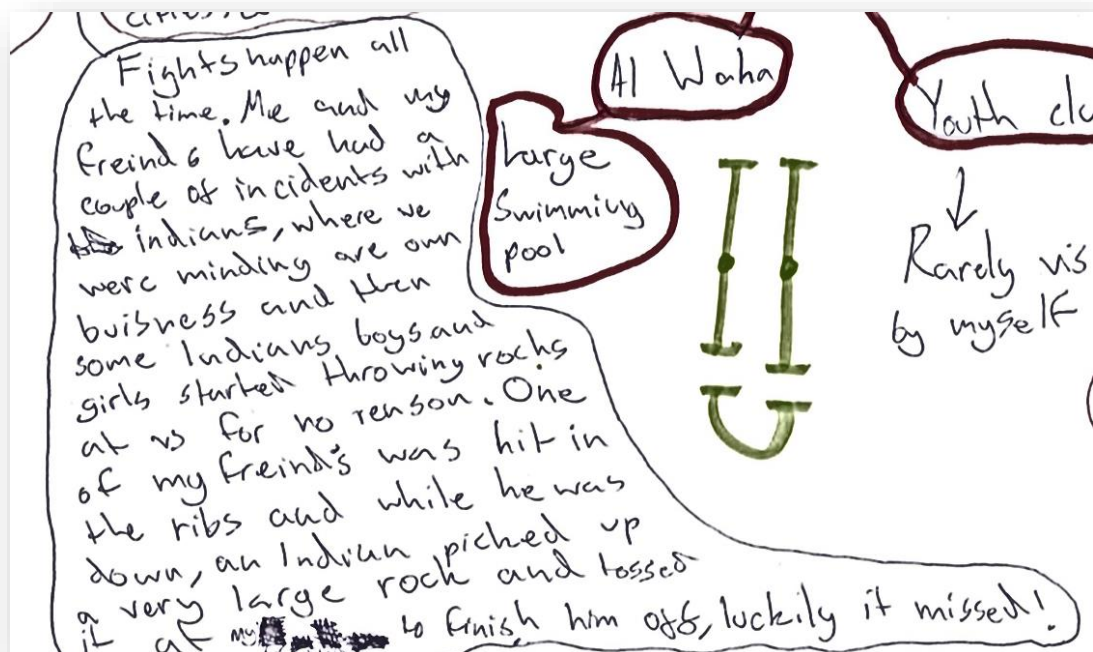 Fights happen all
the time. Me and my
freinds have had a
couple of incidents with
indians, where we
were minding are own
buisness and then
some Indians boys and
girls started throwing rocks
at us for no reason. One
of my freind's was hit in
the ribs and while he was
down, an Indian picked up
a very large rock and tossed
it at my to finish him off, luckily it missed!
Al Waha
Large
Swimming
pool
Youth clu
Rarely vis
by myself